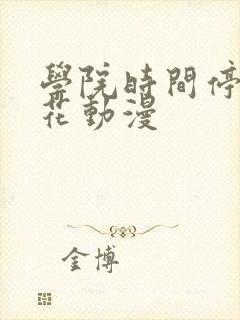 學院時間停
花動漫
金博